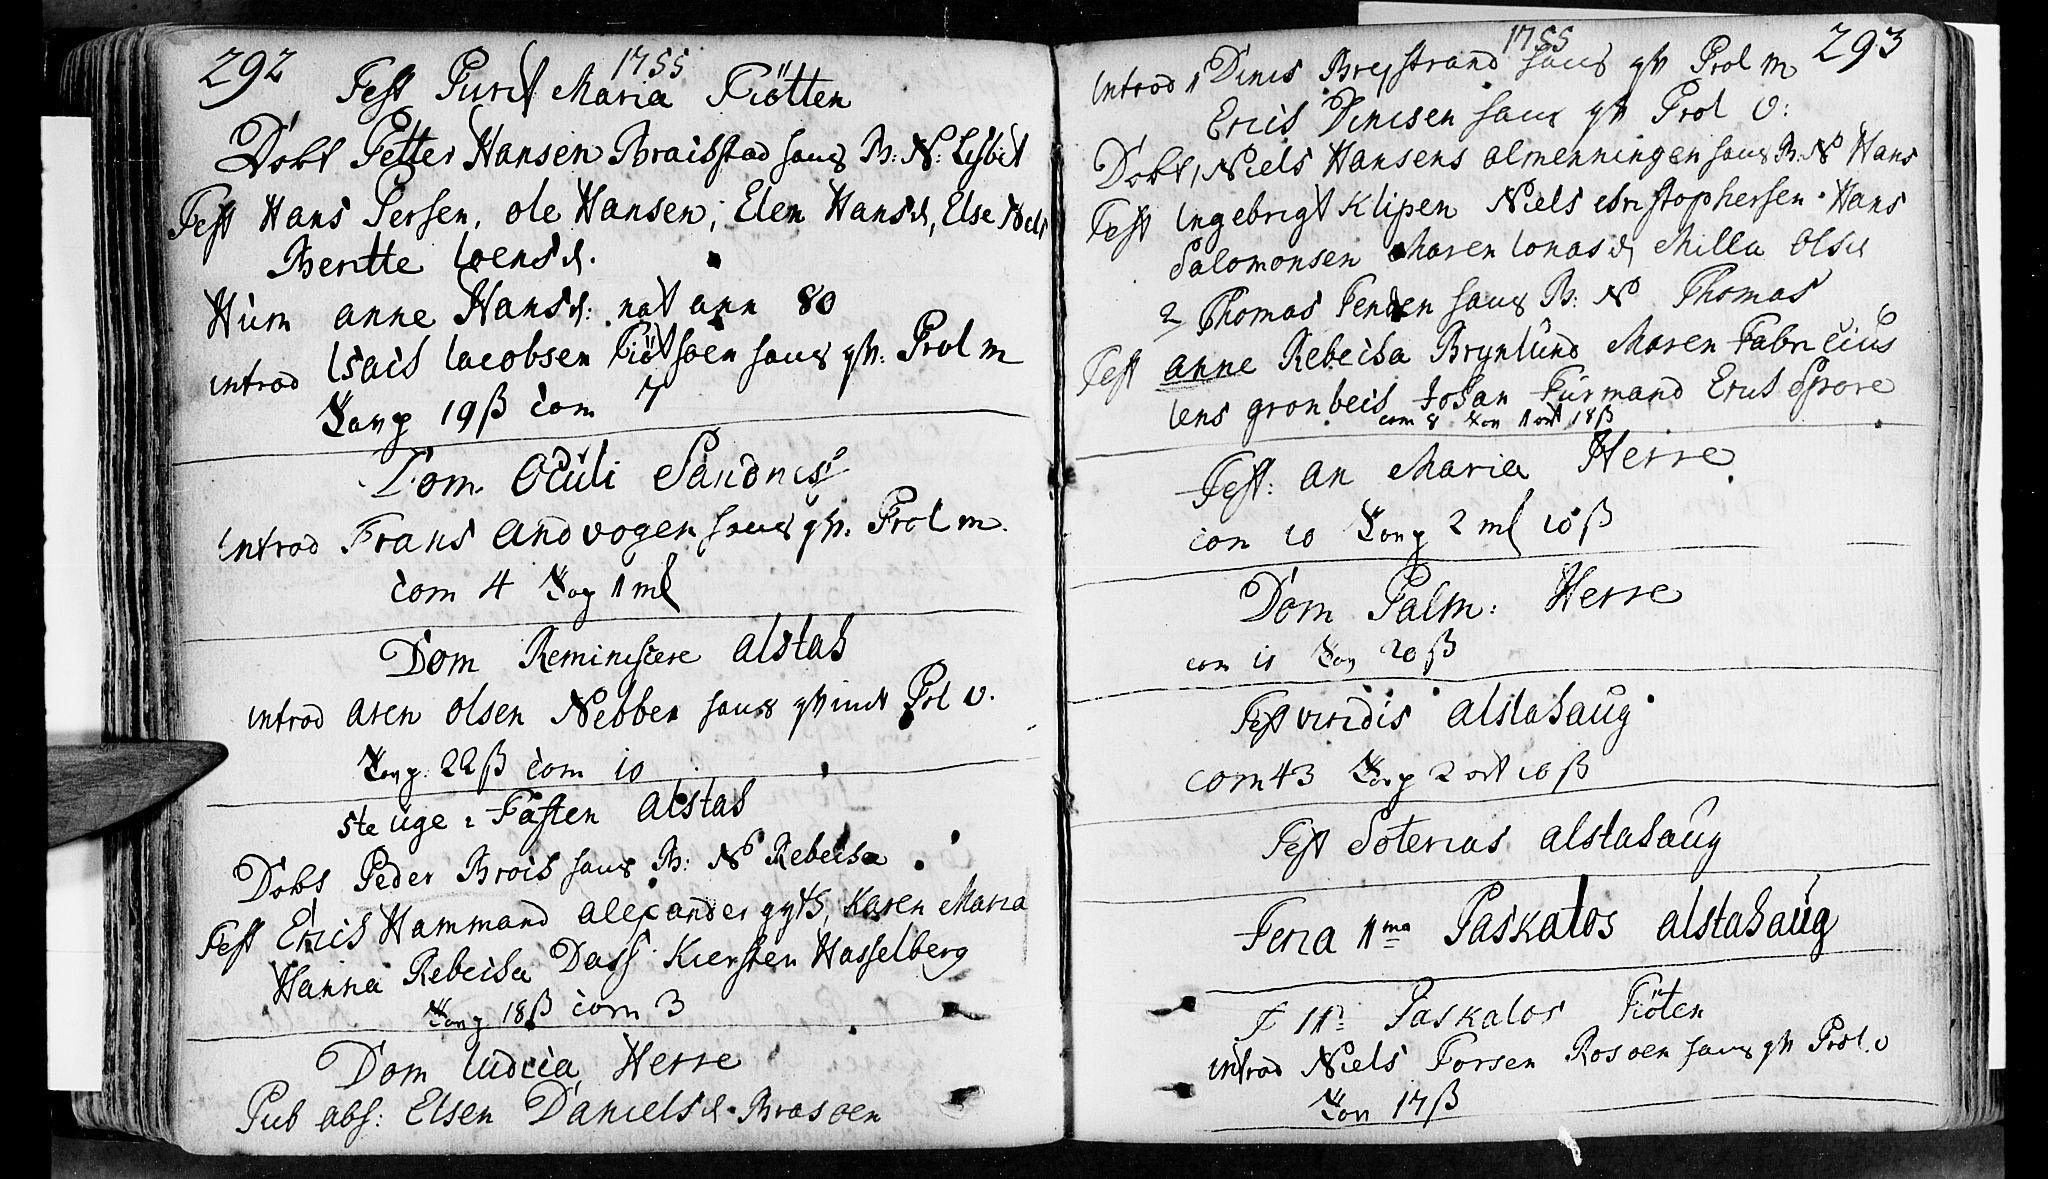 292
1755
Fest Purif Maria Tiötten
Dobt Petter Hansen Braisstad hans B: N: Lisbet
Test Hans Persen, Ole Hansen, Elen Hansd, Else Niels
Beritte Joensd.
Hum anne Hansd: nat ann 80
introd Isach Jacobsen Tiötsoen hans qv: Prol m
Tavg 19 ß com 7
Dom. Oculi Sandnes
introd Frans Andvogen hans qv: Prol m.
com 4 Tavg 1 ml
Dom Reminiscere alstah
introd aren olsen Nebben hans qvinde Prl v.
Tavg: 22 ß com 10
5te uge i Fasten alstah
Dobt Peder Brochs hans B: N Rebecha
Test Erich Hammand alexander, Karen Maria
Hanna Rebecha Dass Kiersten Hasselberg
Tavg 18 ß com 3
Dom Iudica Herre
Pub abs: Elsen Danielsd. Brasoen
1755
293
introd 1 Dines Breystrand hans qv Prol m
Erich Dinesen hans qv Prol v:
Dobt 1, Niels Hansens almenningen hans B: N Hans
Test Ingebrigt Klipen Niels Christophersen Hans
Salomonsen Maren Jonasd Milla Olsd
2 Thomas hans B: N Thomas
Test anne Rebecha Brynlund Maren Fabricius
Jens gronbech Johan Furmand Erich
com 8 Tav 1 ort 18 ß
Fest: an Maria Herre
com 10 Tavg 2 ml 10 ß
Dom Palm: Herre
com 11 Tav 20 ß
Fest viridis alstahaug
com 43 Tavg 2 ort 10 ß
Fest Soterias alstahaug
Feria 1ma Paskatos alstahaug
F 11: Paskatos Tiöten
introd Niels Forsen Rosoen hans qv Prol. v
Tav 17 ß